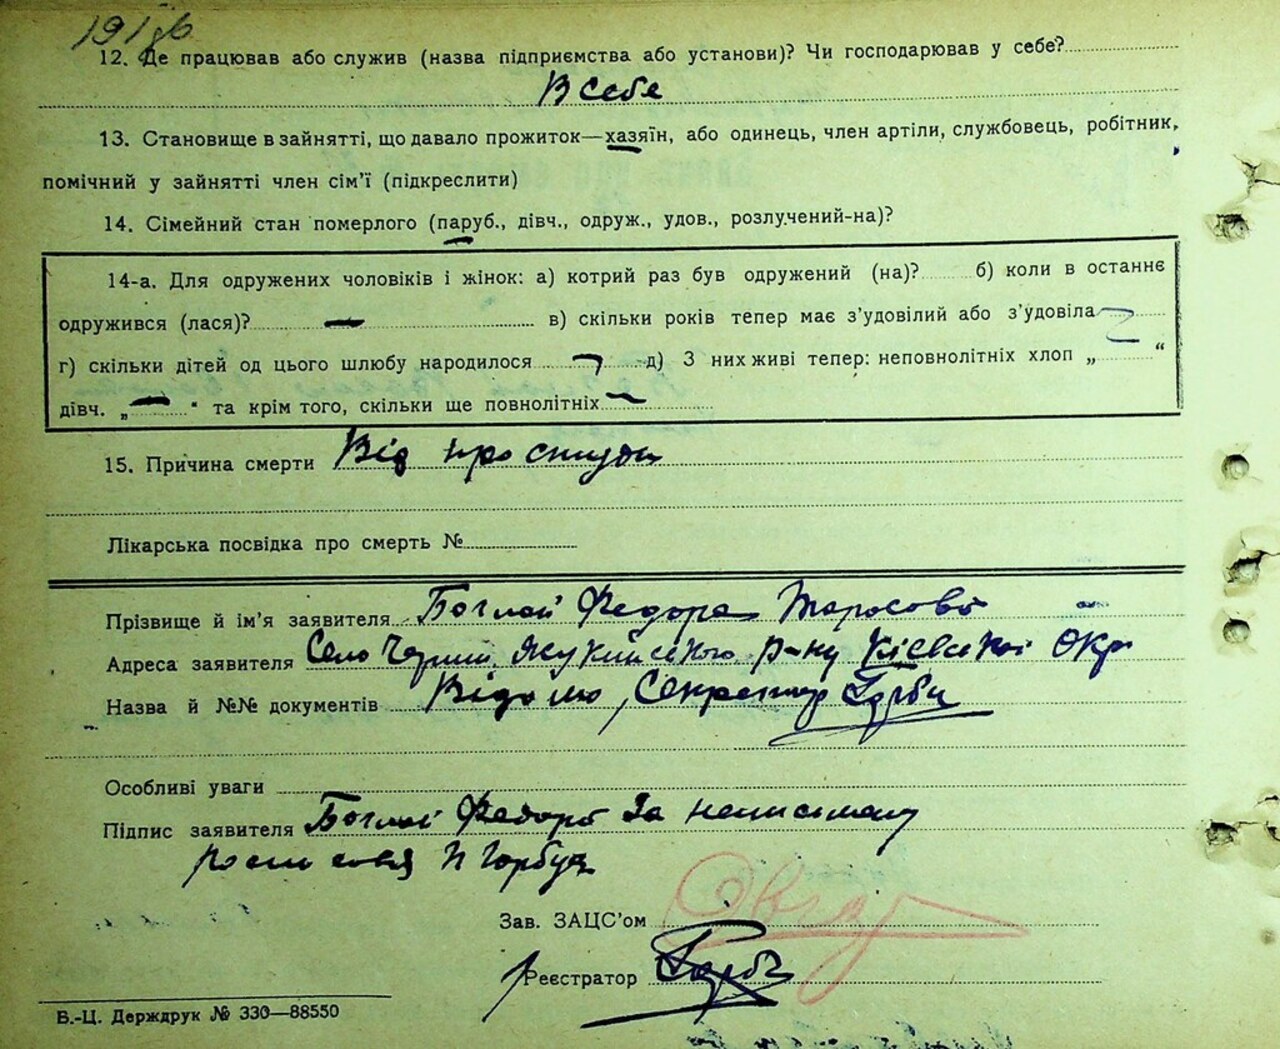 12. Де працював або служив (назва підприємства або установи)? Чи господарював у себе?
В себе
13. Становище в зайнятті, що давало прожиток—хазяїн, або одинець, член артіли, службовець, робітник,
помічний у зайнятті член сім'ї (підкреслити)
14. Сімейний стан померлого (паруб., дівч., одруж., удов., розлучений-на)?
14-а. Для одружених чоловіків і жінок: а) котрий раз був одружений (на)? б) коли в останнє
одружився (лася)? — в) скільки років тепер має з'удовілий або з'удовіла
г) скільки дітей од цього шлюбу народилося д) З них живі тепер: неповнолітніх хлоп „ “
дівч. „ — “ та крім того, скільки ще повнолітніх
15. Причина смерти Від простуди
Лікарська посвідка про смерть №
Прізвище й ім'я заявителя Боглай Федора Тарасова
Адреса заявителя Село р-ну Київської Окр
Назва й №№ документів Відомо, Секретар
Особливі уваги
Підпис заявителя Боглай Федора За неписьмену
росписовся Н Горбуз
Зав. ЗАЦС'ом
Реєстратор
В.-Ц. Держдрук № 330—88550